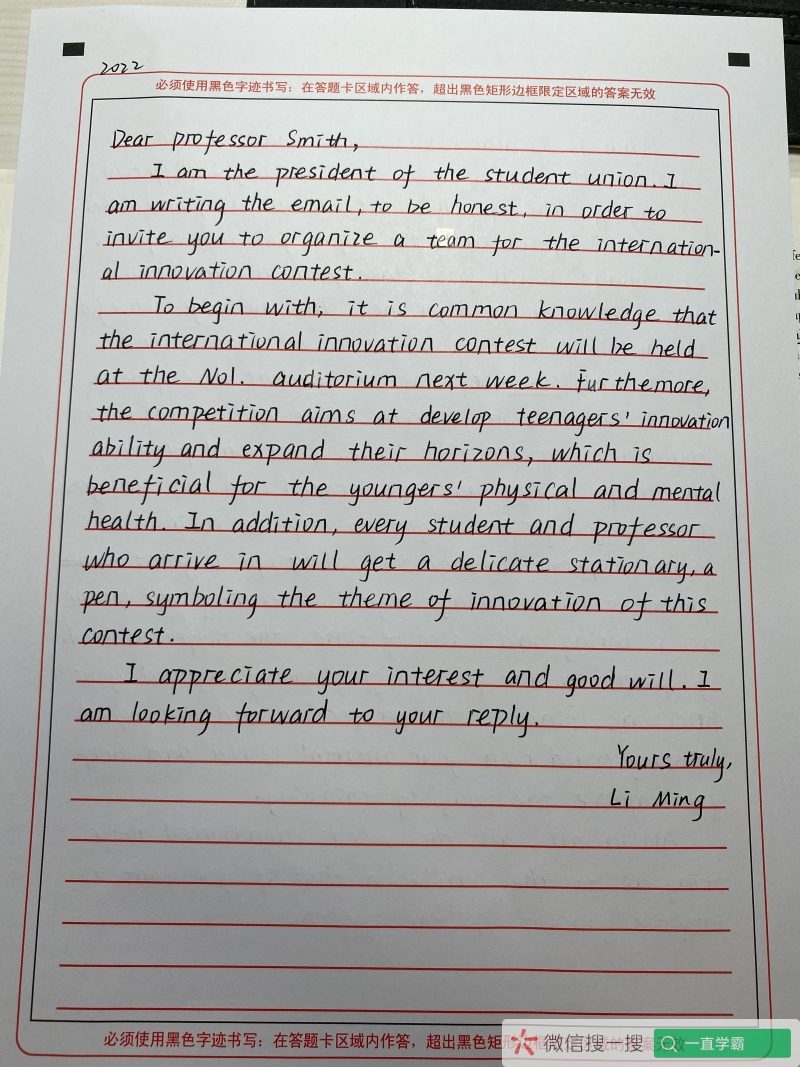 2022
必须使用黑色字迹书写：在答题卡区域内作答，超出黑色矩形边框限定区域的答案无效
Dear professor Smith,
I am the president of the student union. I
am writing the email, to be honest, in order to
invite you to organize a team for the internation-
al innovation contest.
To begin with, it is common knowledge that
the international innovation contest will be held
at the No1. auditorium next week. Furthemore,
the competition aims at develop teenagers' innovation
ability and expand their horizons, which is
beneficial for the youngers' physical and mental
health. In addition, every student and professor
who arrive in will get a delicate stationary, a
pen, symboling the theme of innovation of this
contest.
I appreciate your interest and good will. I
am looking forward to your reply.
Yours truly,
Li Ming
必须使用黑色字迹书写：在答题卡区域内作答，超出黑色矩
微信搜一搜
一直学霸